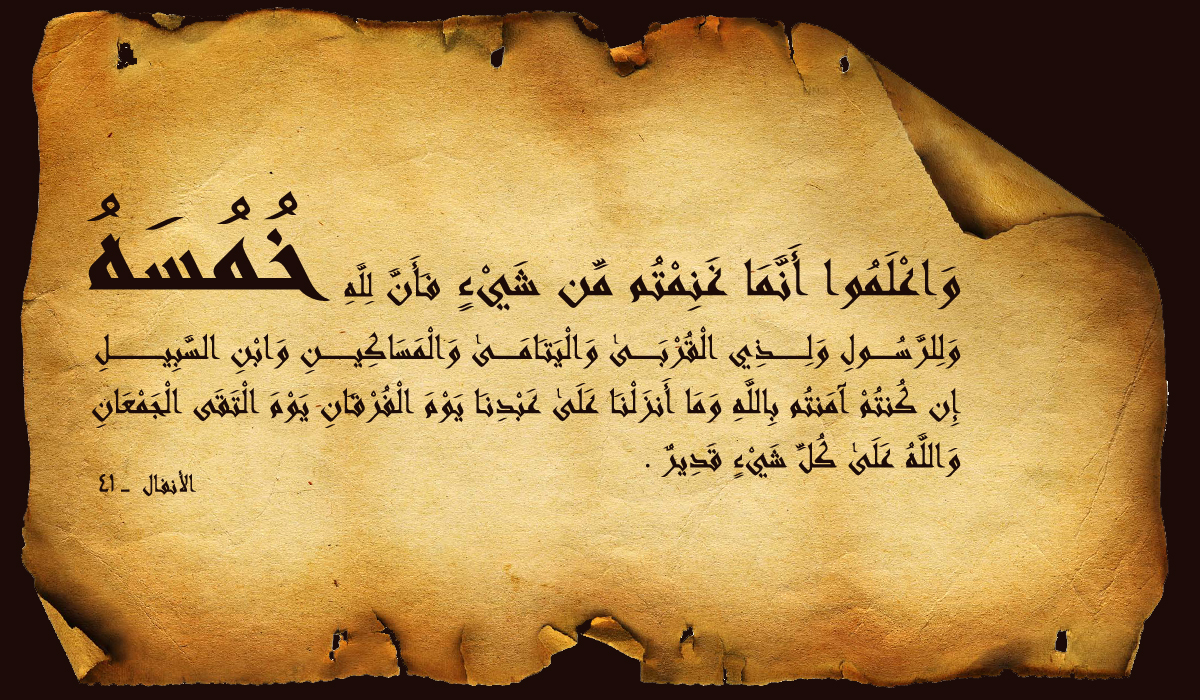 وَاعْلَمُوا أَنَّمَا غَنِمْتُم مِّن شَيْءٍ فَأَنَّ لِلَّهِ خُمُسَهُ
وَلِلرَّسُولِ وَلِذِي الْقُرْبَىٰ وَالْيَتَامَىٰ وَالْمَسَاكِينِ وَابْنِ السَّبِيلِ
إِن كُنتُمْ آمَنتُم بِاللَّهِ وَمَا أَنزَلْنَا عَلَىٰ عَبْدِنَا يَوْمَ الْفُرْقَانِ يَوْمَ الْتَقَى الْجَمْعَانِ
وَاللَّهُ عَلَىٰ كُلِّ شَيْءٍ قَدِيرٌ .
الأنفال ـ ٤١